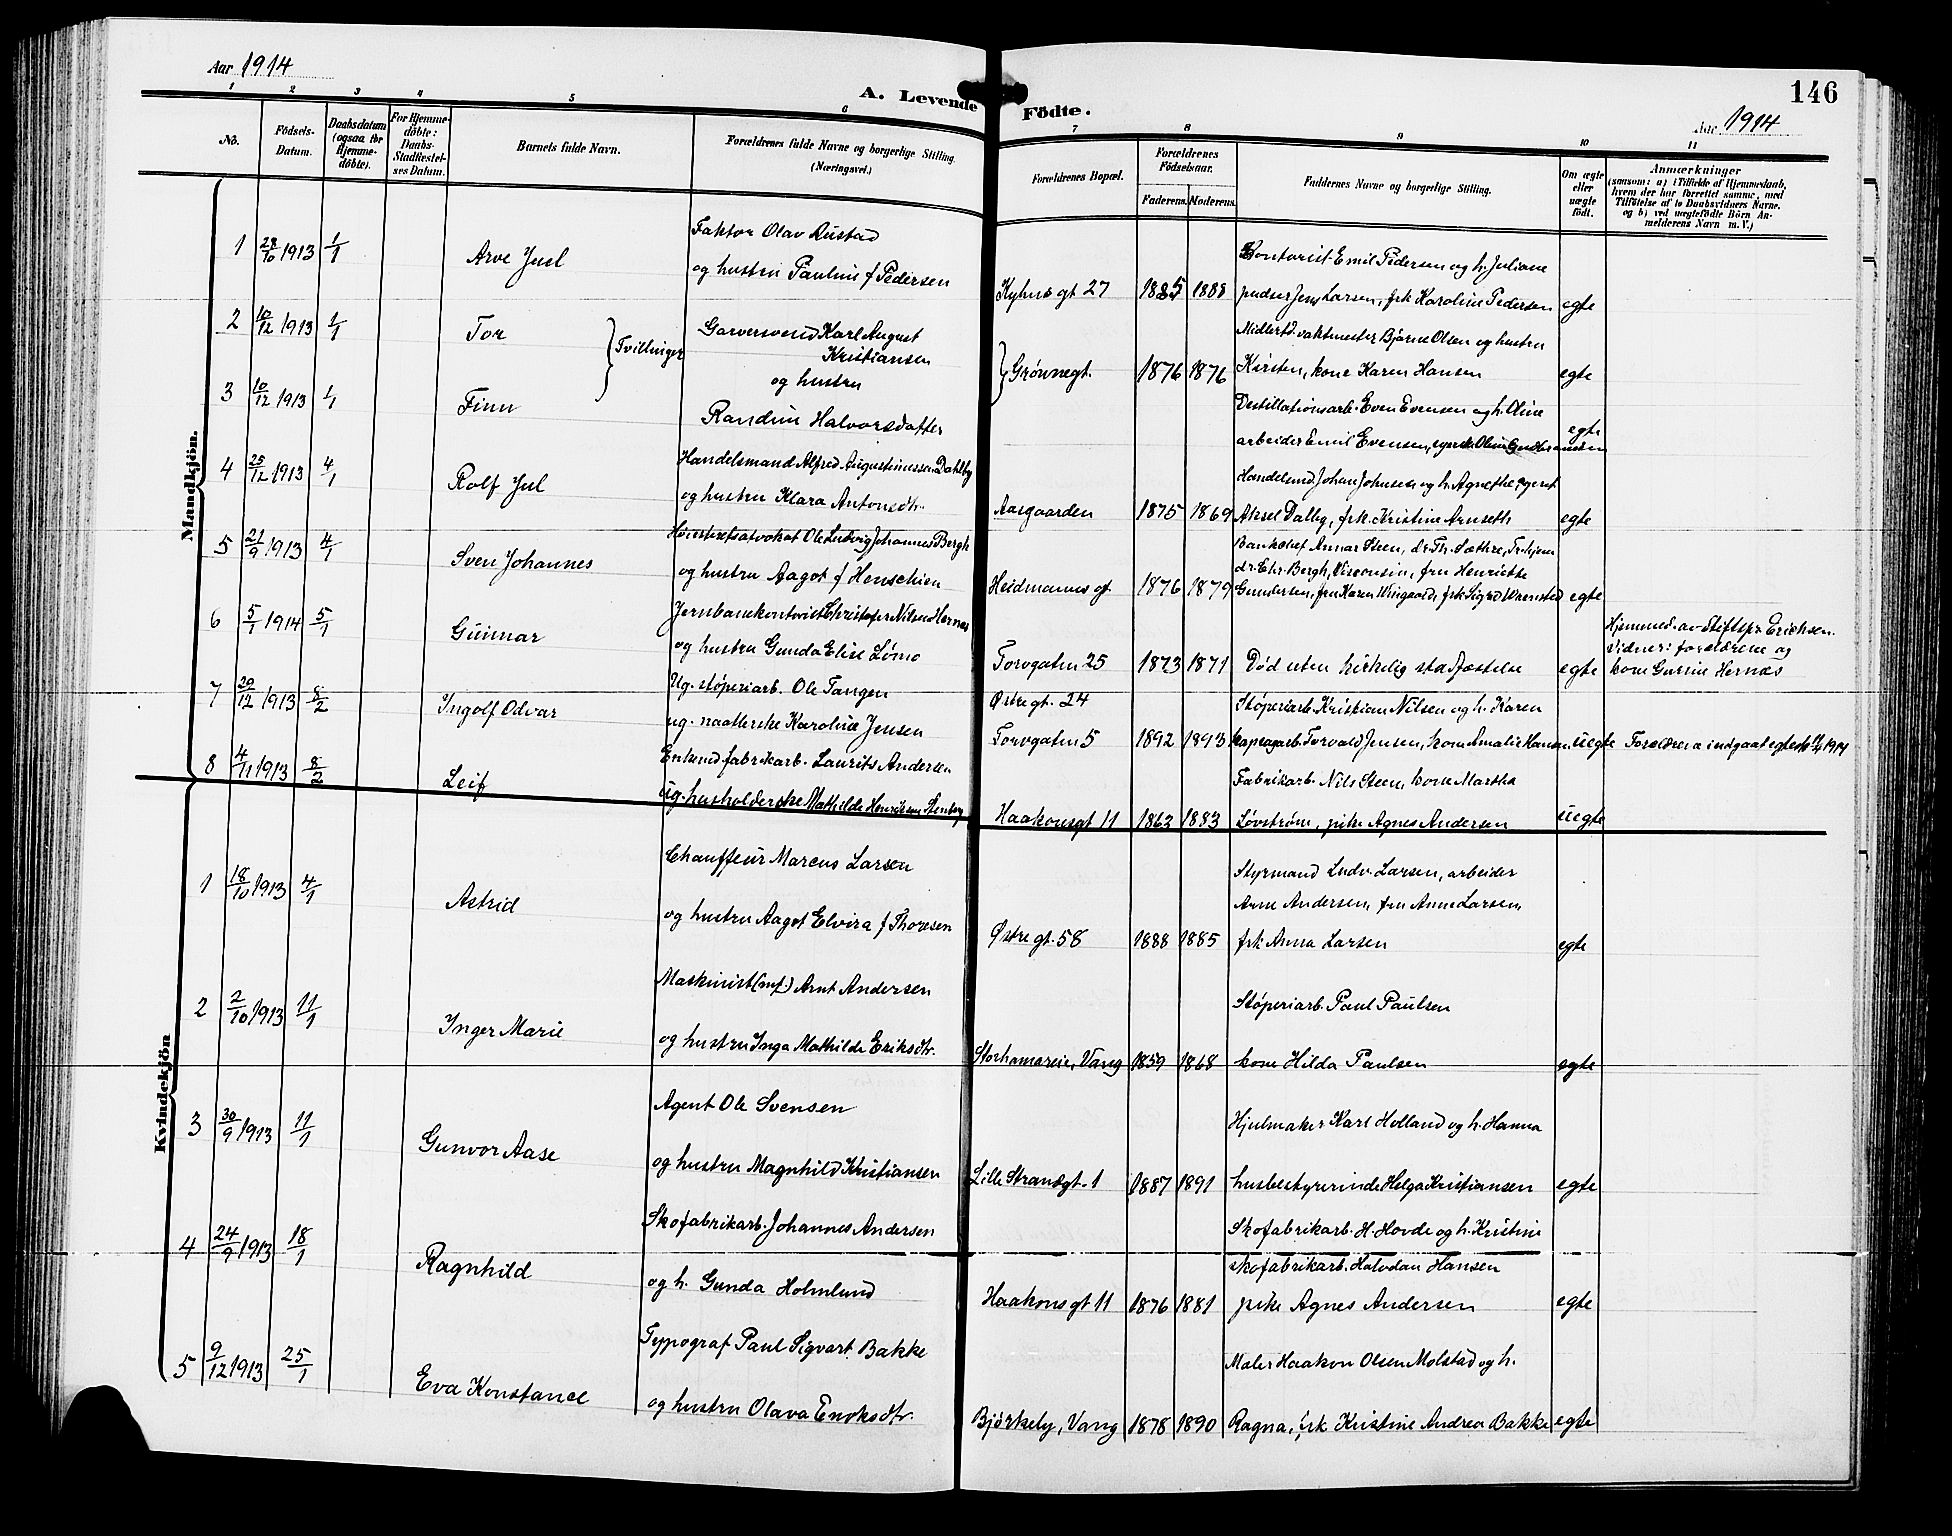 Aar 1914
A. Levende Födte.
146
Aar 1914
1 2 3 4 5 6 7 8 9 10 11
No.
Födsels-Datum.
Daabsdatum (ogsaa for Hjemme-døbte).
For Hjemme-døbte: Daabs-Stadfæstel-ses Datum.
Barnets fulde Navn.
Forældrenes fulde Navne og borgerlige Stilling. (Næringsvei.)
Forældrenes Bopæl.
Forældrenes Födselsaar.
Faderens. Moderens.
Faddernes Navne og borgerlige Stilling.
Om ægte eller uægte födt.
Anmærkninger
(saasom: a) i Tilfælde af Hjemmedaab, hvem der har forrettet samme, med Tilföielse af to Daabsvidners Navne. og b) ved uægtefödte Börn An-melderens Navn m. V.)
Mandkjön.
1 28/10 1913 1/1 Arve Jusl
Faktor Olav Rustad
og hustru Pauline f Pedersen
Kyhns gt 27 1885 1888
Kontorist Emil Pedersen og h. Juliane
pudser Jens Larsen, frk Karoline Pedersen egte
2 10/12 1913 1/1 Tor } Tvillinger
3 10/12 1913 1/1 Finn
Garversvend Karl August
Kristiansen
og hustru
Randine Halvorsdatter
Grønnegt. 1876 1876
Midlertd. vaktmester Bjarne Olsen og hustru
Kirsten, kone Karen Hansen egte
Destillationsarb. Even Evensen og h. Oline
arbeider Emil Evensen, egte
4 25/12 1913 4/1 Rolf Jul
Handelsmand Alfred Augustinussen Dahlby
og hustru Klara Antonsdtr.
Aasgaarden 1875 1869
Handelsmd Johan Johnsen og h. Agnethe, agent
Aksel Dalby, frk. Kristine Arnseth egte
5 21/9 1913 4/1 Sven Johannes
Høiesteretsadvokat Ole Ludvig Johannes Bergh
og hustru Aagot f Henschien
Heidmanns gt 1876 1879
Bankchef Annar Steen, dr. Th. Sæthre, Tr.hjem
dr. Chr. Bergh, Wisconsin, fru Henriette
Gundersen, fru Karen Wiigaard, frk Sigrd Wrensted egte
6 5/1 1914 5/1 Guimar
Jernbanekontorist Christofer Nilsen Hernæs
og hustru Gunda Elise Lømo
Torvgaten 25 1873 1871
Død uten kirkelig stadfæstelse egte
Hjemmed. av Stiftspr. Erichsen.
Vidner: forældrene og
kone Gurine Hernæs
7 20/12 1913 8/2 Ingolf Odvar
Ug. støperiarb. Ole Tangen
ug. naatlerske Karoline Jensen
Østregt. 24
Torvgaten 5 1892 1893
Støperiarb. Kristian Nilsen og h. Karen
kapsagarb. Torvald Jensen, kone Amalie Hansen uegte
8 4/11 1913 8/2 Leif
Enkemd fabrikarb. Laurits Andersen
ug. husholderske Mathilde Henriksen Stenberg
Haakonsgt 11 1863 1883
Fabrikarb. Nils Steen, kone Martha
Løvstrøm, pike Agnes Andersen uegte
Kvindekjön
1 18/10 1913 4/1 Astrid
Chauffeur Marcus Larsen
og hustru Aagot Elvira f Thoresen
Østre gt. 58 1888 1885
Styrmand Ludv. Larsen, arbeider
Arne Andersen, fru Anne Larsen,
frk Anna Larsen egte
2 2/10 1913 11/1 Inger Marie
Maskinist (mf.) Arnt Andersen
og hustru Inga Mathilde Eriksdtr.
Storhamareie, Vang 1859 1868
Støperiarb. Paul Paulsen
kone Hilda Paulsen egte
3 30/9 1913 11/1 Gunvor Aase
Agent Ole Svensen
og hustru Magnhild Kristiansen
Lille Strandgt. 1 1887 1891
Hjulmaker Karl Holland og h. Hanna
husbestyrerinde Helga Kristiansen egte
4 24/9 1913 18/1 Ragnhild
Skofabrikarb. Johannes Andersen
og h. Gunda Holmlund
Haakons gt 11 1876 1881
Skofabrikarb. H. Hovde og h. Kristine
skofabrikarb. Halvdan Hansen
pike Agnes Andersen egte
5 9/12 1913 25/1 Eva Konstance
Typograf Paul Sigvart Bakke
og hustru Olava Enoksdtr.
Bjørkely, Vang 1878 1890
Maler Haakon Olsen Molstad og h.
Ragna, frk Kristine Andrea Bakke egte